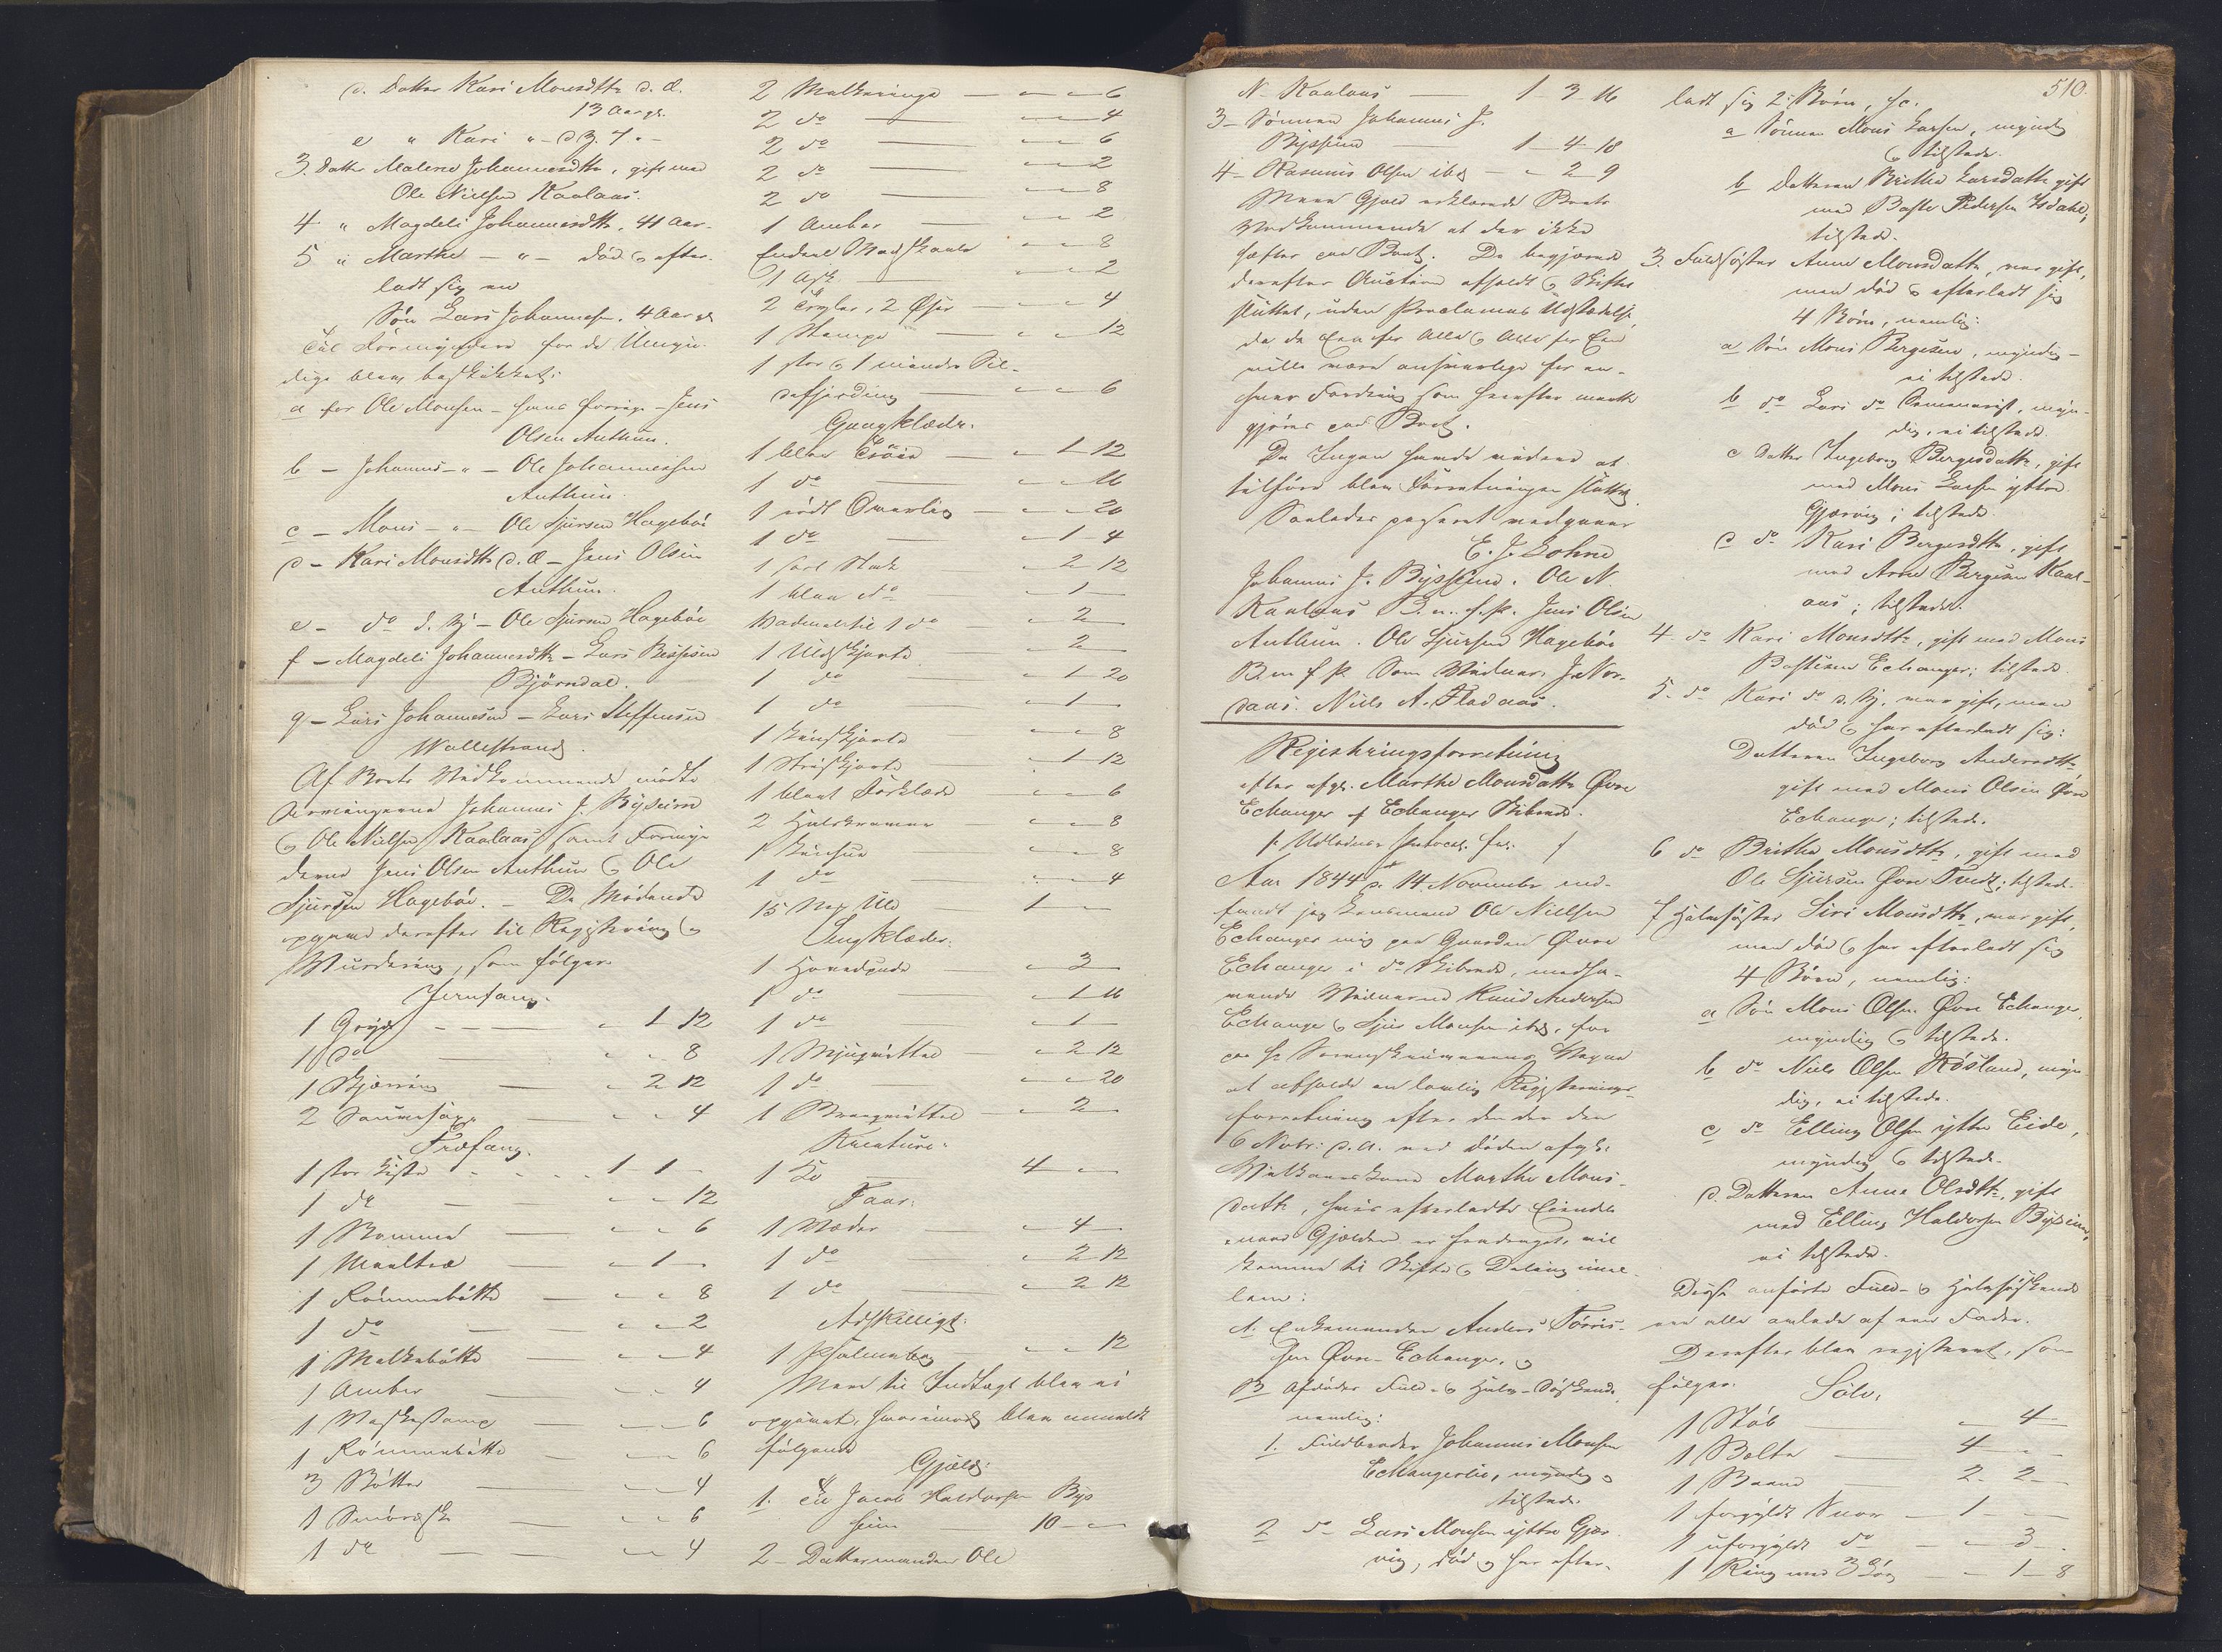 d. Datter Kari Monsdttr d. æ.
13 Aar gl.
e " Kari " - d. y. 7 " -
3. Datter Malene Johannesdttr, gift med
Ole Nielsen Kaalaas.
4 " Magdeli Johannesdttr, 41 Aar.
5 " Marthe - " - död & efter-
ladt sig en
Søn Lars Johannesen, 4 Aar gl.
Til Formyndere for de Umyn-
dige blev beskikket:
a for Ole Monsen - hans - Jens
Olsen Authun.
b - Johannes - " - Ole Johannessen
Authun.
c - Mons - " - Ole Sjursen Hagebøe
d - Kari Monsdttr d. æ - Jens Olsen
Authun.
e - do d. y. - Ole Sjursen Hagebøe
f - Magdeli Johannesdttr - Lars
Björndal.
g - Lars Johannesen - Lars Steffensen
Wallestrand.
Af Boets Vedkommende mødte
Johannes J. Bysseim
& Ole Nielsen Kaalaas samt Formyn-
derne Jens Olsen Authun & Ole
Sjursen Hagebøe. - De Mødende
derefter til Registrering &
Wurdering, som følger:
Jernfang.
1 Gryde - - - " 1 12
1 do - " " 8
1 Kjærring - " 2 12
2 - " " 4
Træfang.
1 stor Kiste - - - 1 - 1 -
1 do - - - 12
1 - - - 6
1 - - 1 -
1 Rømmebøtte - - - 8
1 do - - - 2
1 Melkebøtte - - - 4
1 Amber - - - 4
1 - - - 6
1 Rømmebøtte - - - 6
3 Bøtter - - - 4
1 - - - 6
1 do - - - 4
2 Melkeringe - - - 6
2 do - - - 4
2 do - - - 6
2 do - - - 2
2 do - - - 8
1 Amber - - - 2
Endeel - - - 8
1 Ask - - - 2
2 , 2 Øser - - - 4
1 Stampe - - - 12
1 stor & 1 mindre Sil-
defjerding - - - 6
Gangklæder.
1 blaa Trøie - - 1 - 12
1 do - - - 16
1 rødt Overliv - - - 20
1 do - - 1 - 4
1 sort Stak - - 2 - 12
1 blaa do - - 1 -
Vadmel til 1 do - - 2 -
1 Uldskjorte - - 2 -
1 do - - 1 - 20
1 do - - 1 -
1 Skjorte - - - 8
1 Strieskjorte - - 1 - 12
1 blaat Forklæde - - - 6
2 - - - 8
1 - - - 8
1 do - - - 4
15 Uld - 1 - -
Sengklæder.
1 Hovedpude - - 3 -
1 do - - 1 - 16
1 do - - 1 -
1 - - 2 - 12
1 do - - - 20
1 - - 2 -
Kreature.
1 Ko 4 - -
Faar.
1 Væder - - 4 -
1 do - - 2 - 12
1 do - - 2 - 12
Adskilligt.
1 Psalmebog - - - 12
Mere til Indtægt blev ei
opgivet, hvorimod blev anmeldt
følgende
Gjæld:
1. Til Jacob Haldorsen Bys-
seim - 10 - -
2 - Dattermanden Ole
N. Kaalaas - 1 - 3 - 16
3 - Sønnen Johannes J.
Bysseim - 1 - 4 - 18
4 - Rasmus Olsen ibd - - 2 - 9
Mere Gjæld erklærede Boets
Vedkommende at der ikke
hæfter paa Boet. De begjærede
derefter Auction afholdt & Skiftet
sluttet, uden Proclamas Udstædelse
da de Een for Alle & Alle for Een
ville være ansvarlige for en-
hver Fordring som herefter maatte
gjøres paa Boet.
Da Ingen havde videre at
tilføre blev Forretningen sluttet.
Saaledes passeret vedgaaer
E. J. Lohne
Johannes J. Bysseim. Ole N.
Kaalaas B. m. f. P. Jens Olsen
Authun. Ole Sjursen Hagebøe
B. m. f. P. Som Vidner: J. Nor-
daas. Niels A. Fladaas.
Registringsforretning
efter afg. Marthe Monsdatter Øvre
Echanger af Echanger Skibrede.
Aar 1844 d. 14 November ind-
fandt jeg Lensmand Ole Nielsen
Echanger mig paa Gaarden Øvre
Echanger i do Skibrede, medha-
vende Vidnerne Knud Andersen
Echanger & Sjur Monsen ibd, for
paa Hr Sorenskriverens Vegne
at afholde en lovlig Registrerings-
forretning efter den der den
6 Novbr d. A. ved døden afgk.
Marthe Mons-
datter, hvis efterladte Eiendele
naar Gjælden er fradraget, vil
komme til Skifte & Deling imel-
lem:
A. Enkemanden Anders Torris-
sen Øvre Echanger, &
B Afdødes Fuld- & Halv-Søskende,
nemlig:
1. Fuldbroder Johannes Monsen
Echangerlie, myndig &
tilstede.
2 do Lars Monsen yttre Gjær-
vig, død & har efter-
510.
ladt sig 2 Børn, sc.
a Sønnen Mons Larsen, myndig
& tilstede.
b Datteren Brithe Larsdatter gift
med Baste Pedersen Isdahl,
tilstede.
3. Fuldsøster Anne Monsdatter, var gift,
men død & efterladt sig
4 Børn, nemlig:
a Søn Mons Bergesen, myndig -
ei tilstede.
b do Lars do myn-
dig, ei tilstede.
c Datter Ingeborg Bergesdatter, gift
med Mons Larsen yttre
Gjærvig; tilstede.
d do Kari Bergesdttr, gift
med Arne Bergesen Kaal-
aas; tilstede.
4. do Kari Monsdttr, gift med Mons
Bastesen Echanger; tilstede.
5. do Kari do d. y. var gift, men
død & har efterladt sig:
Datteren Ingeborg Andersdttr
gift med Mons Olsen Øvre
Echanger; tilstede.
6 do Brithe Monsdttr, gift med
Ole Sjursen Øvre Tvedt; tilstede.
7 Halvsøster Siri Monsdttr, var gift,
men død & har efterladt sig
4 Børn, nemlig:
a Søn Mons Olsen Øvre Echanger,
myndig & tilstede.
b do Niels Olsen Røsland, myn-
dig, ei tilstede.
c do Elling Olsen yttre Eide,
myndig & tilstede.
d. Datteren Anna Olsdttr, gift
med Elling Haldorsen Bysseim,
ei tilstede.
Disse anførte Fuld- & Halvsøskende
ere alle avlede af een Fader.
Derefter blev registreret, som
følger: Sølv.
1 Støb - - 4 -
1 Belte - 4 - -
1 - 2 - 2 -
1 forgyldt - 1 - -
1 uforgyldt do - - 3 -
1 Ring med 3 Løv - - 1 - 8